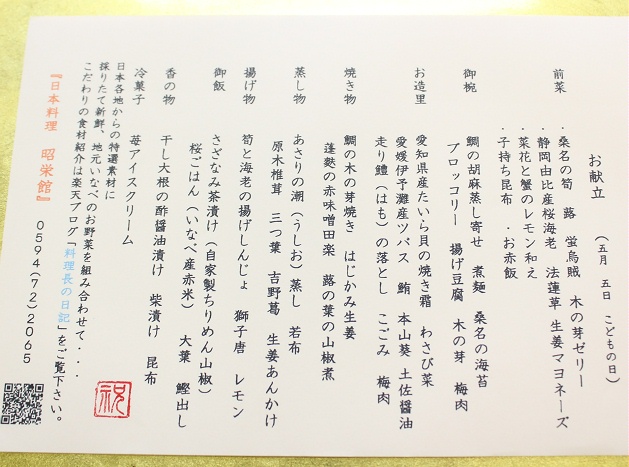 お献立 (五月 五日 こどもの日)
前菜 ・桑名の筍 蕗 蛍烏賊 木の芽ゼリー
・静岡由比産桜海老 法蓮草 生姜マヨネーズ
・菜花と蟹のレモン和え
・子持ち昆布 ・お赤飯
御椀 鯛の胡麻蒸し寄せ 煮麺 桑名の海苔
ブロッコリー 揚げ豆腐 木の芽 梅肉
お造里 愛知県産たいら貝の焼き霜 わさび菜
愛媛伊予灘産ツバス 鮪 本山葵 土佐醤油
走り鱧(はも)の落とし こごみ 梅肉
焼き物 鯛の木の芽焼き はじかみ生姜
蓬麩の赤味噌田楽 蕗の葉の山椒煮
蒸し物 あさりの潮(うしお)蒸し 若布
原木椎茸 三つ葉 吉野葛 生姜あんかけ
揚げ物 筍と海老の揚げしんじょ 獅子唐 レモン
御飯 さざなみ茶漬け(自家製ちりめん山椒)
桜ごはん(いなべ産赤米) 大葉 鰹出し
香の物 干し大根の酢醤油漬け 柴漬け 昆布
冷菓子 苺アイスクリーム
日本各地からの特選素材に
採りたて新鮮、地元いなべのお野菜を組み合わせて・・・
こだわりの食材紹介は楽天ブログ「料理長の日記」をご覧下さい。
『日本料理 昭栄館』 0594(72)2065
祝